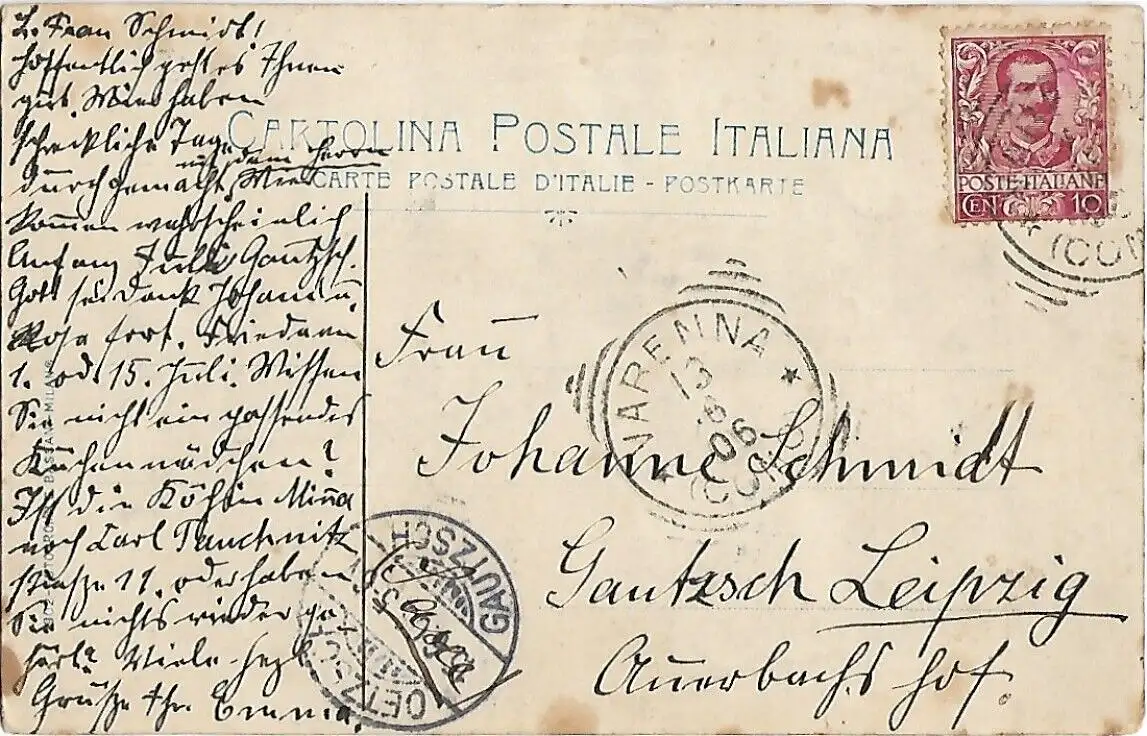 L. Frau Schmidt!
Hoffentlich geht es Ihnen
gut. Wir haben
schreckliche Tage
mit dem Herrn
durchgemacht, Wir
kommen wahrscheinlich
Anfang Juli Gautzsch.
Gott sei dank Johann u.
Rosa fort. Frieda am
1. od. 15. Juli. Wissen
Sie nicht ein passendes
Küchenmädchen?
Ist die Köchin Minna
noch Carl Tauchnitz
straße 11. oder haben
Sie nichts wieder ge-
hört? Viele herzl
Grüße Ihr. Emma.
CARTOLINA POSTALE ITALIANA
CARTE POSTALE D'ITALIE - POSTKARTE
POSTE·ITALIANE
CEN 10
(COM
VARENNA
13
6
06
(COMO)
Frau
Johanne Schmidt
Gautzsch Leipzig
Auerbachs hof.
OETZSCH
GAUTZSCH